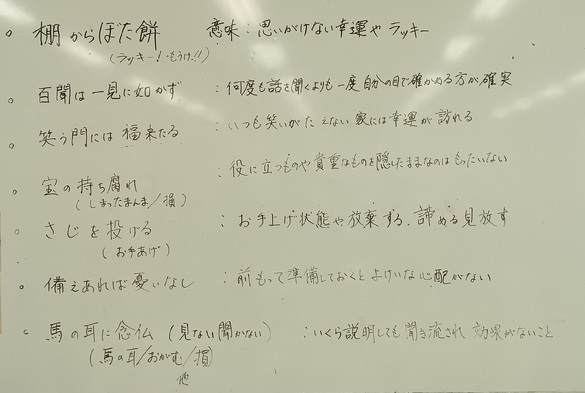 棚からぼた餅 意味：思いがけない幸運や ラッキー
(ラッキー！・もうけ!!)
百聞は一見に如かず ：何度も話を聞くよりも一度自分の目で確かめる方が確実
笑う門には福来たる ：いつも笑いがたえない家には幸運が訪れる
宝の持ち腐れ ：役に立つものや貴重なものを隠したままなのはもったいない
(しまったまんま/損)
さじを投げる ：お手上げ状態や放棄する、諦める見放す
(お手あげ)
備えあれば憂いなし ：前もって準備しておくとよけいな心配がない
馬の耳に念仏 (見ない聞かない) ：いくら説明しても聞き流され 効果がないこと
(馬の耳/おがむ/損)
他